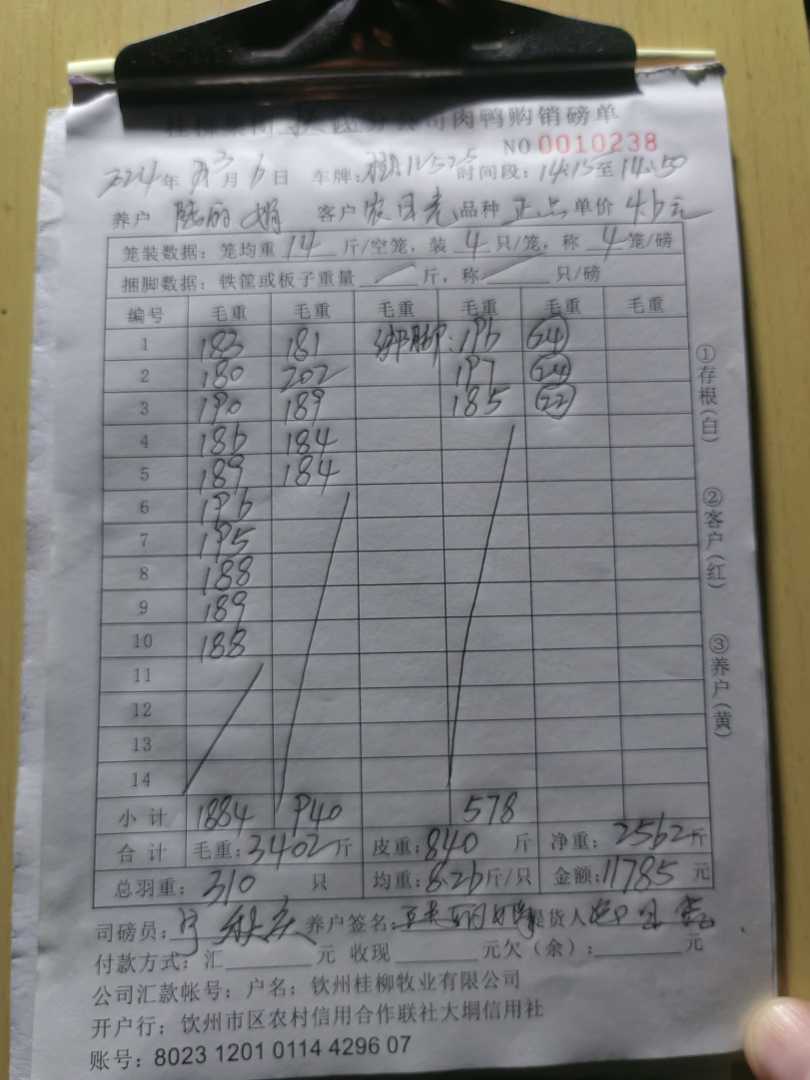 司肉鸭购销磅单
NO 0010238
2024年3月6日 车牌: 时间段: 14:15至14:50
养户 客户 品种 正品 单价 4.6元
笼装数据: 笼均重 14 斤/空笼, 装 4 只/笼, 称 4 笼/磅
捆脚数据: 铁筐或板子重量 / 斤, 称 / 只/磅
编号 毛重 毛重 毛重 毛重 毛重 毛重
1 183 181 绑脚: 196 24
2 180 202 197 24
3 190 189 185 22
4 186 184
5 189 184
6 196
7 195
8 188
9 189
10 188
11
12
13
14
小计 1884 940 578
合计 毛重: 3402斤 皮重: 840 斤 净重: 2562斤
总羽重: 310 只 均重: 8.26斤/只 金额: 11785 元
司磅员: 养户签名: 提货人
付款方式: 汇 元 收现 元欠(余): 元
公司汇款帐号: 户名: 钦州桂柳牧业有限公司
开户行: 钦州市区农村信用合作联社大垌信用社
账号: 8023 1201 0114 4296 07
①存根(白)
②客户(红)
③养户(黄)